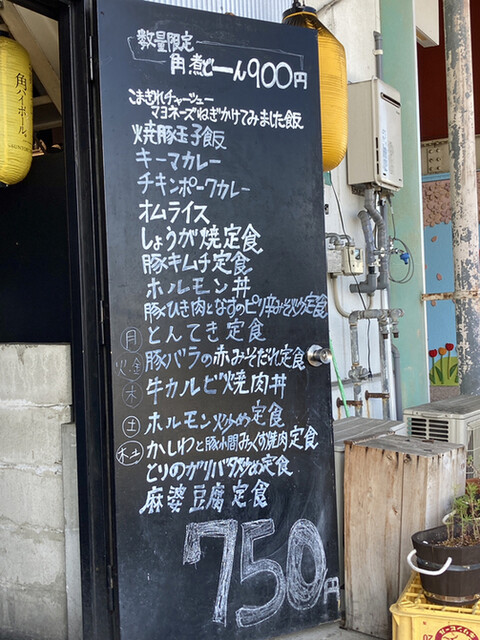 数量限定
角煮どーん900円
こまぎれチャーシュー
マヨネーズねぎかけてみました飯
焼豚玉子飯
キーマカレー
チキンポークカレー
オムライス
しょうが焼定食
豚キムチ定食
ホルモン丼
豚ひき肉となすのピリ辛みそ炒め定食
月 とんてき定食
火・金 豚バラの赤みそだれ定食
木 牛カルビ焼肉丼
土 ホルモン炒め定食
木・土 かしわと豚小間みっくす焼肉定食
とりのガリバタ炒め定食
麻婆豆腐定食
750円
角ハイボール。